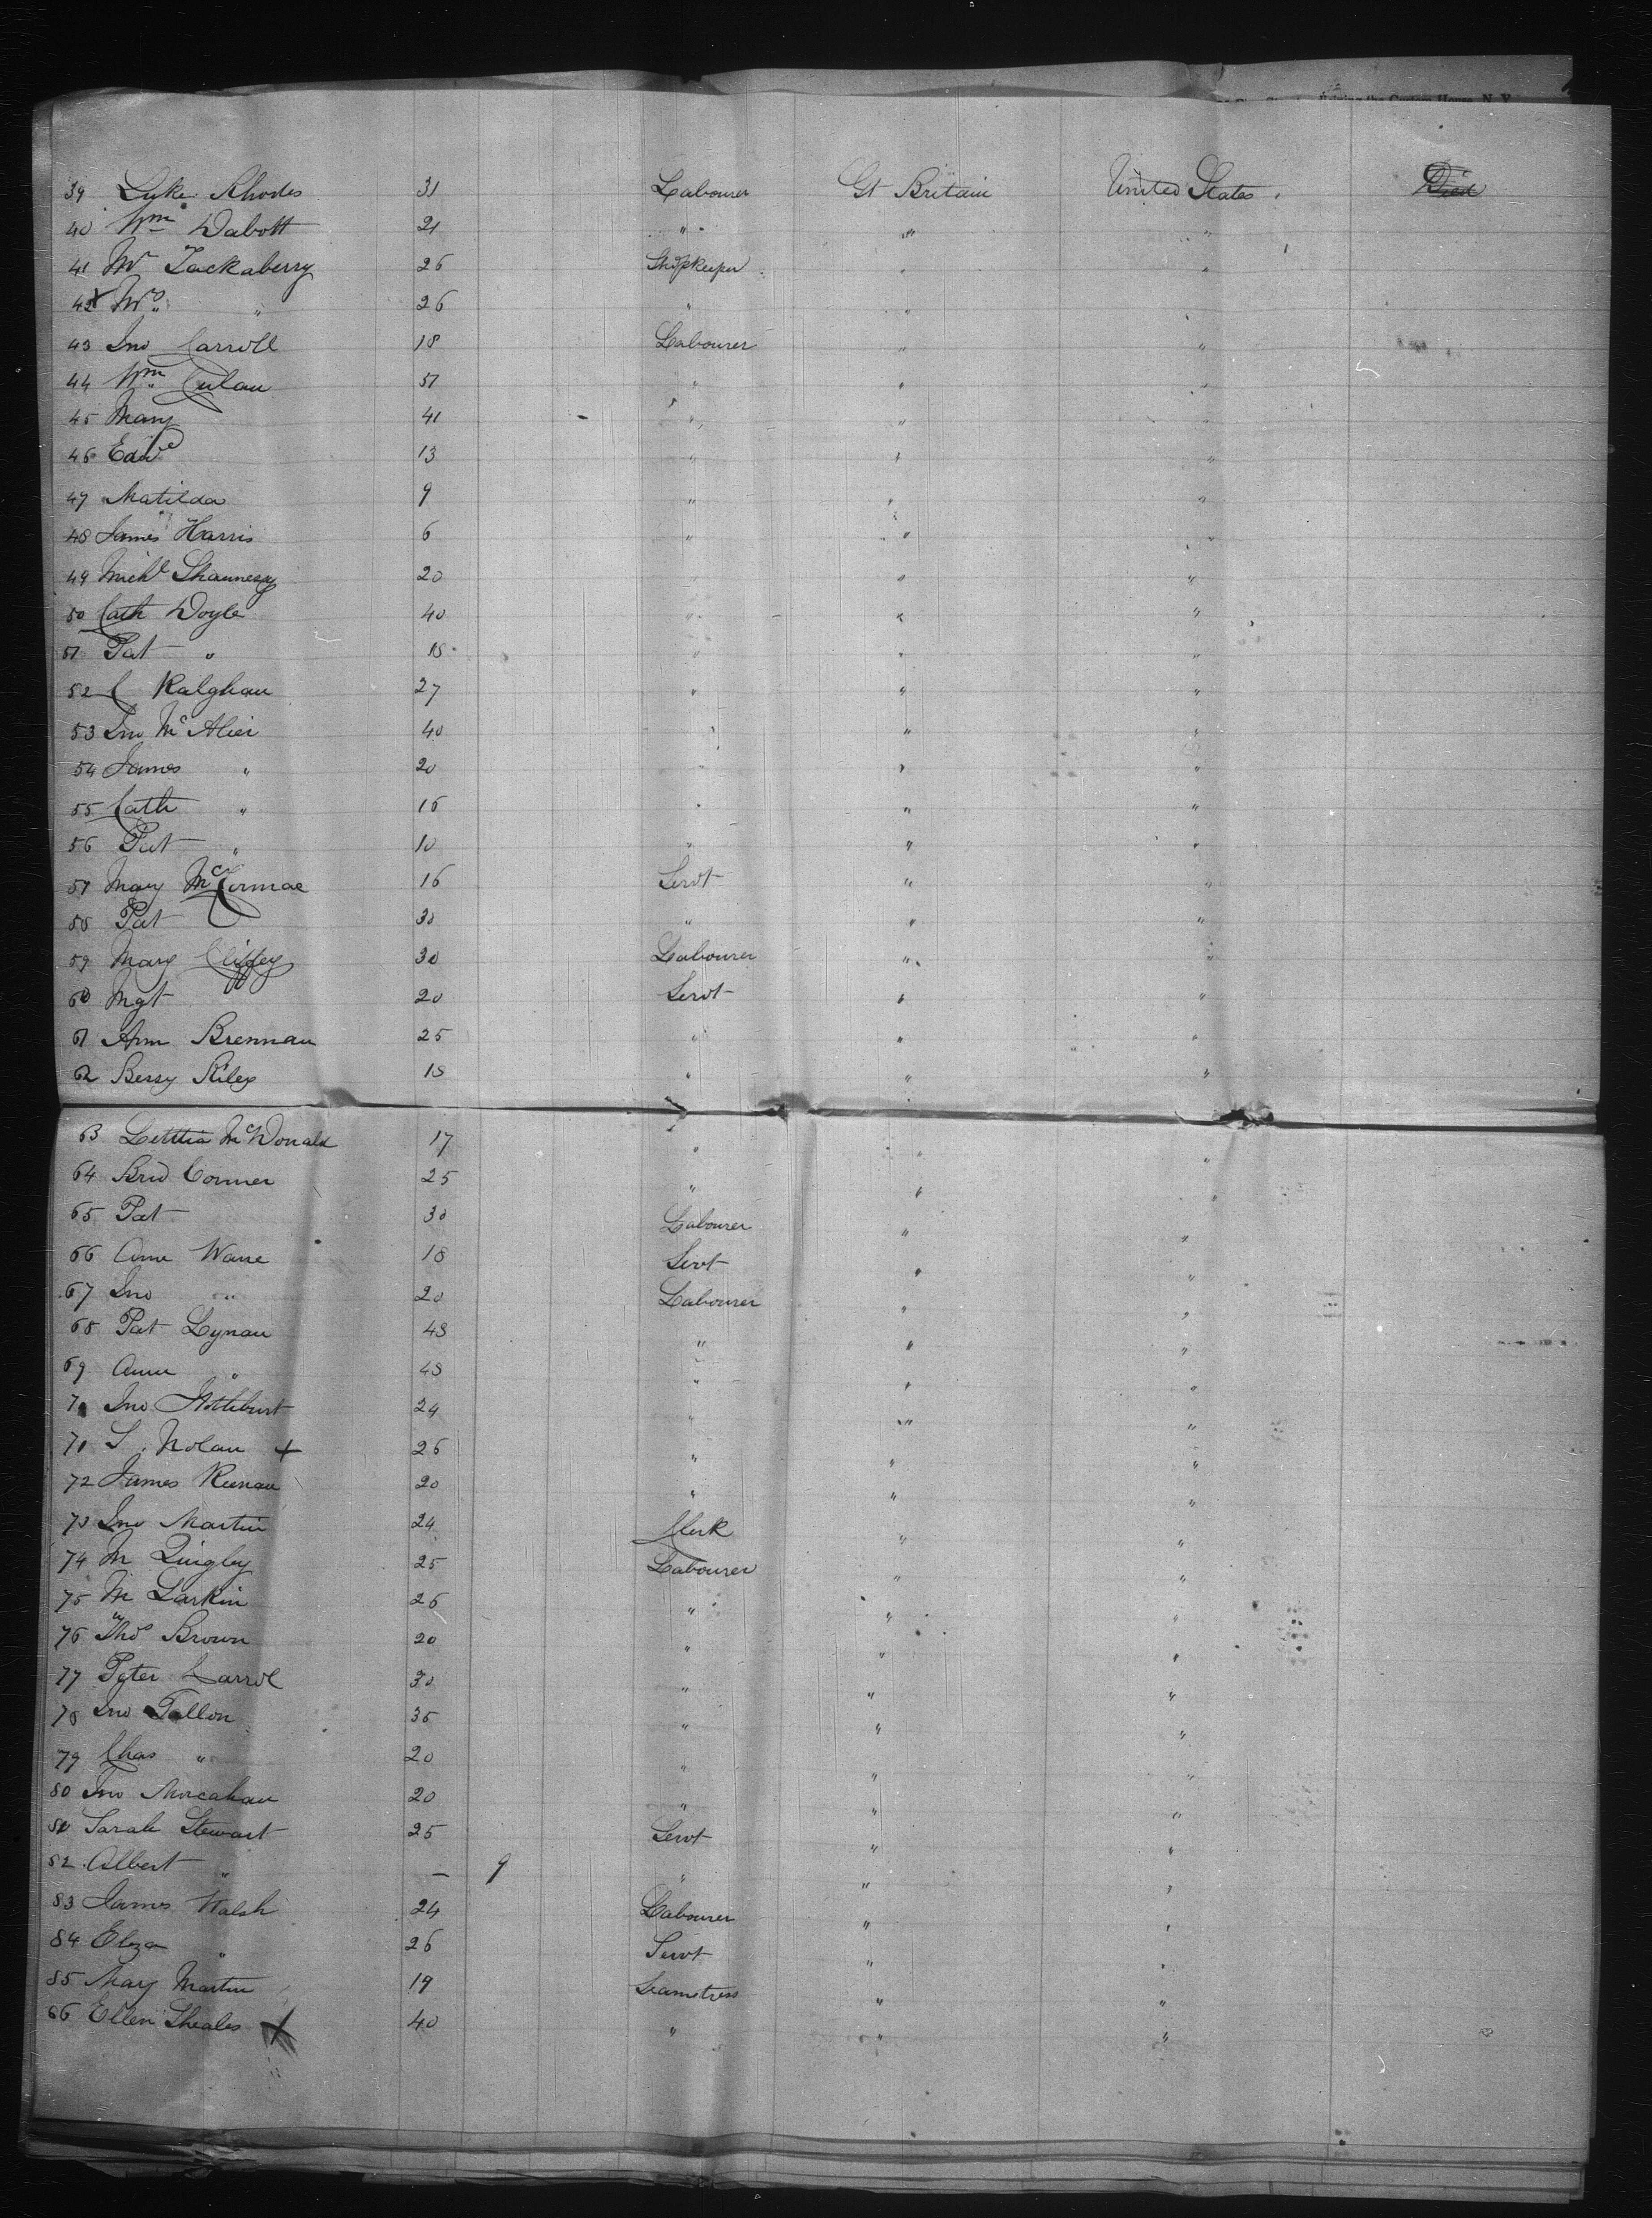 the Custom House, N.Y.
39 Luke Rhodes 31 Labourer Gt Britain United States Died
40 Wm Dabott 21 " " "
41 Mr Tackaberry 26 Shopkeeper " "
42 x Mrs " 26 " " "
43 Jno Carroll 18 Labourer " "
44 Wm 51 " " "
45 Mary 41 " " "
46 Edwd 13 " " "
47 Matilda 9 " " "
48 James Harris 6 " " "
49 Michl Shaunesy 20 " " "
50 Cath Doyle 40 " " "
51 Pat " 18 " " "
52 C Kalghan 27 " " "
53 Jno McAlier 40 " " "
54 James " 20 " " "
55 Cath " 16 " " "
56 Pat " 10 " " "
57 Mary McCormac 16 Servt " "
58 Pat 30 " " "
59 Mary Cliffey 30 Labourer " "
60 Mgt 20 Servt " "
61 Ann Brennan 25 " " "
62 Bessy Riley 18 " " "
63 Letttia McDonald 17 " " "
64 Brid Conner 25 " " "
65 Pat 30 Labourer " "
66 Ann 18 Servt " "
67 Jno " 20 Labourer " "
68 Pat Lynan 48 " " "
69 Ann " 48 " " "
70 Jno 24 " " "
71 S. Nolan + 26 " " "
72 James Keenan 20 " " "
73 Jno Martin 24 Clerk " "
74 M Quigley 25 Labourer " "
75 M Larkin 26 " " "
76 Thos Brown 20 " " "
77 Peter Carrol 30 " " "
78 Jno Tallon 35 " " "
79 Chas " 20 " " "
80 Jno 20 " " "
81 Sarah Stewart 25 Servt " "
82 Albert " — 9 " " "
83 James Walsh 24 Labourer " "
84 Eliza " 26 Servt " "
85 Mary Martin 19 Seamstress " "
86 Ellen Sheales + 40 " " "